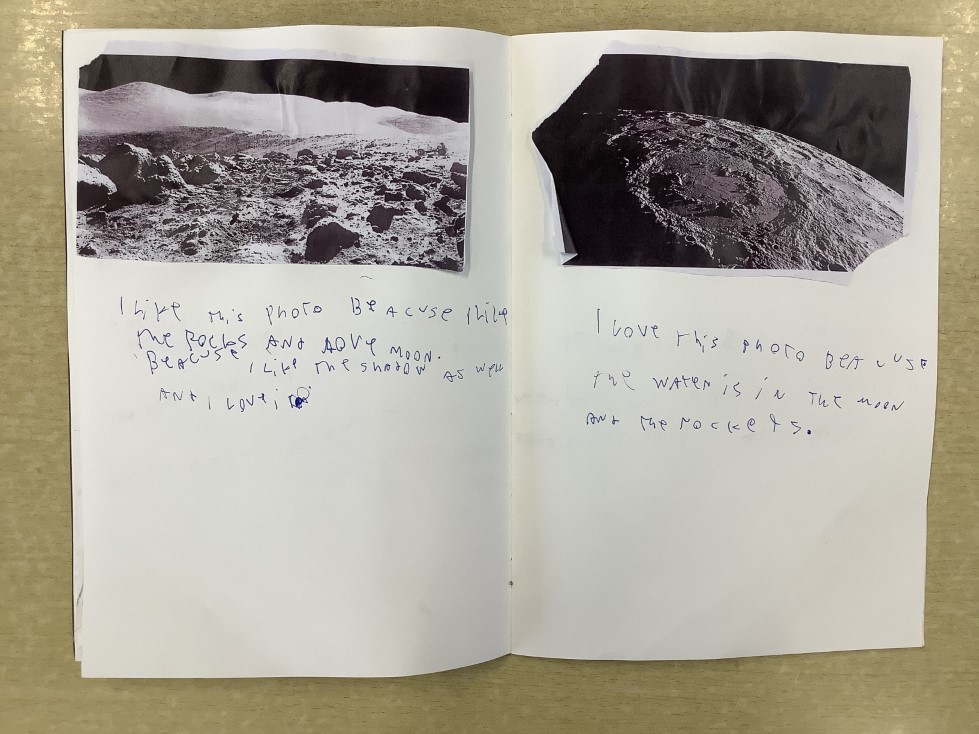 I Like this photo BeAcuse I like
the Rocks And Aove moon.
BeAcuse I Like the shadow As well
And I Love it
I Love this photo BeACUSE
the water is in the moon
And the rockets.